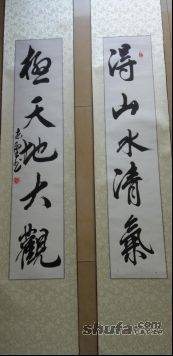 得山水清氣
極天地大觀
shufa.com